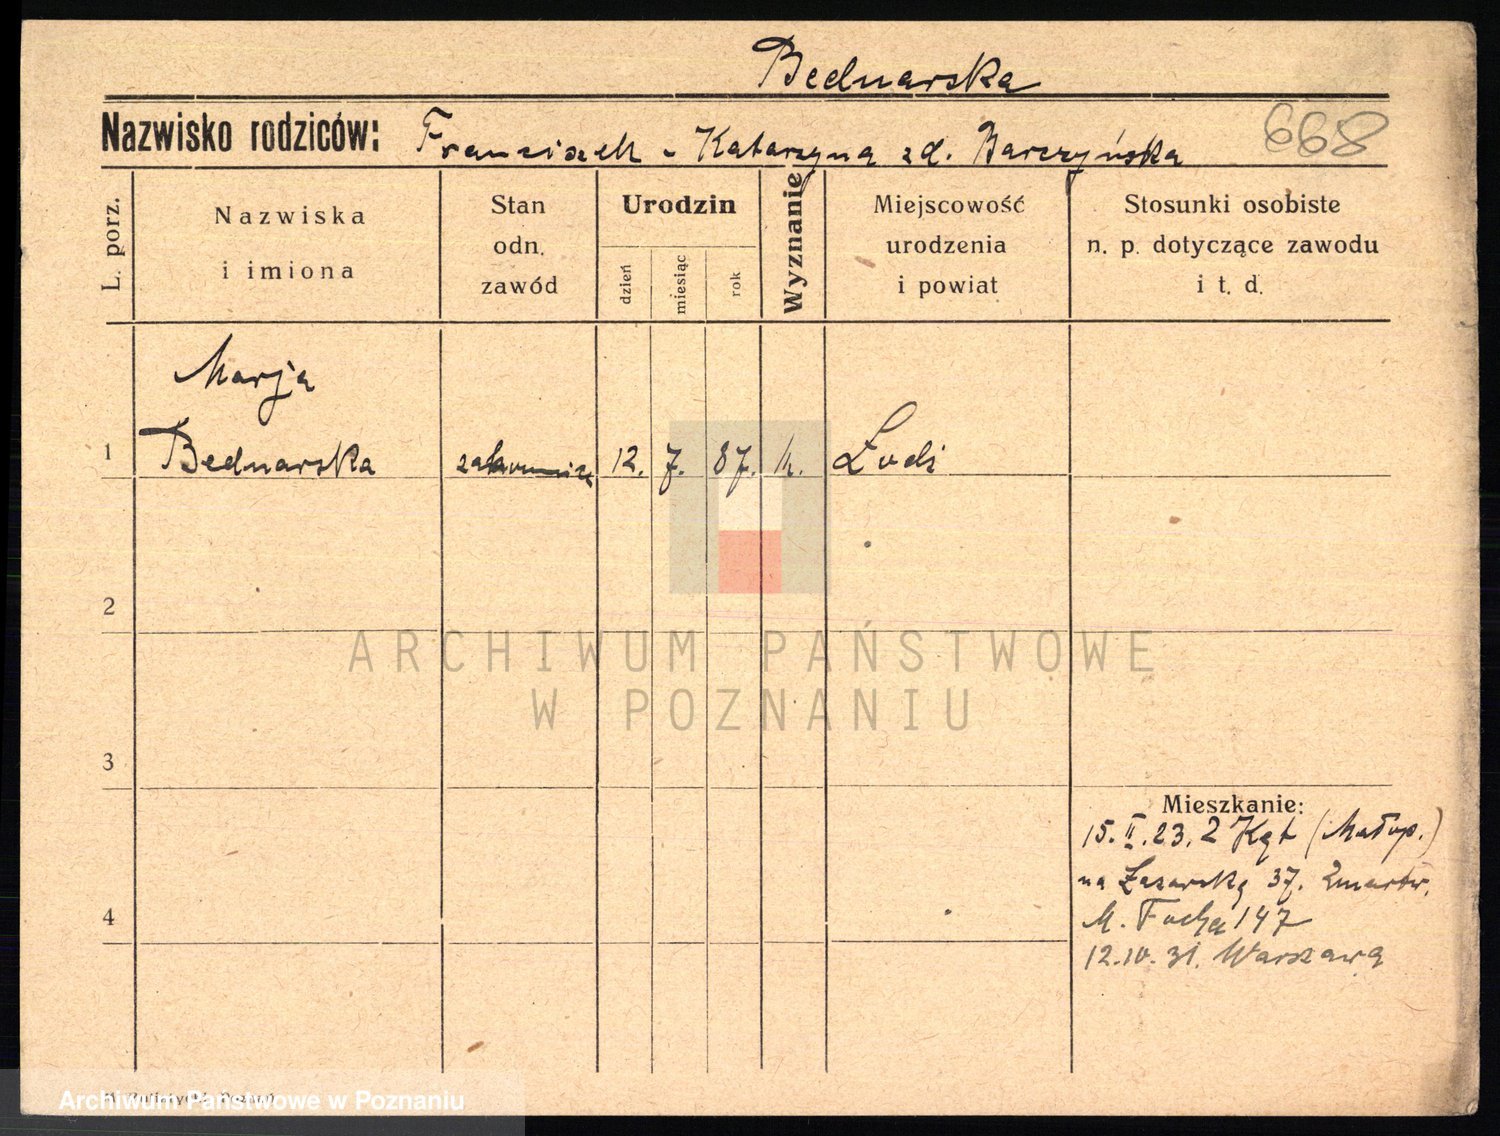 Bednarska
Nazwisko rodziców: Franciszek - Katarzyna zd. Barczyńska
668
L. porz.
Nazwiska
i imiona
Stan
odn.
zawód
Urodzin
dzień
miesiąc
rok
Wyznanie
Miejscowość
urodzenia
i powiat
Stosunki osobiste
n. p. dotyczące zawodu
i t. d.
Marja
1 Bednarska zakonnica 12. 7. 87. k. Łodź
2
3
4
ARCHIWUM PAŃSTWOWE
W POZNANIU
Mieszkanie:
15. II. 23. z Kęt (Małop.)
na Łazarską 37. Zmartw.
M. Focha 147
12.IV.31. Warszawa
Archiwum Państwowe w Poznaniu